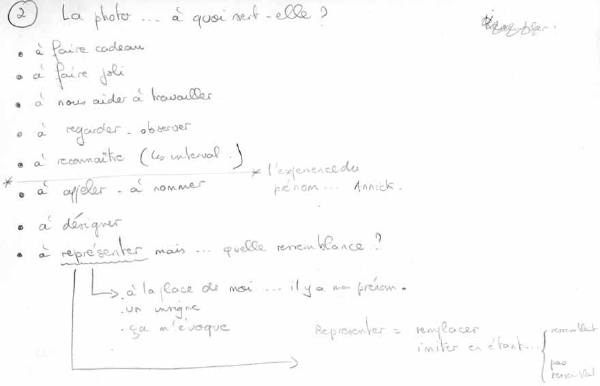 2 La photo ... à quoi sert-elle ?
• à faire cadeau
• à faire joli
• à nous aider à travailler
• à regarder - observer
• à reconnaître (
* l'expérience du
prénom ... Annick.
* • à appeler - à nommer
• à désigner
• à représenter mais ... quelle ressemblance ?
. à la place de moi ... il y a mon prénom.
. un insigne
. ça m'évoque
Représenter = remplacer
imiter en étant...
ressemblant
pas
ressemblant